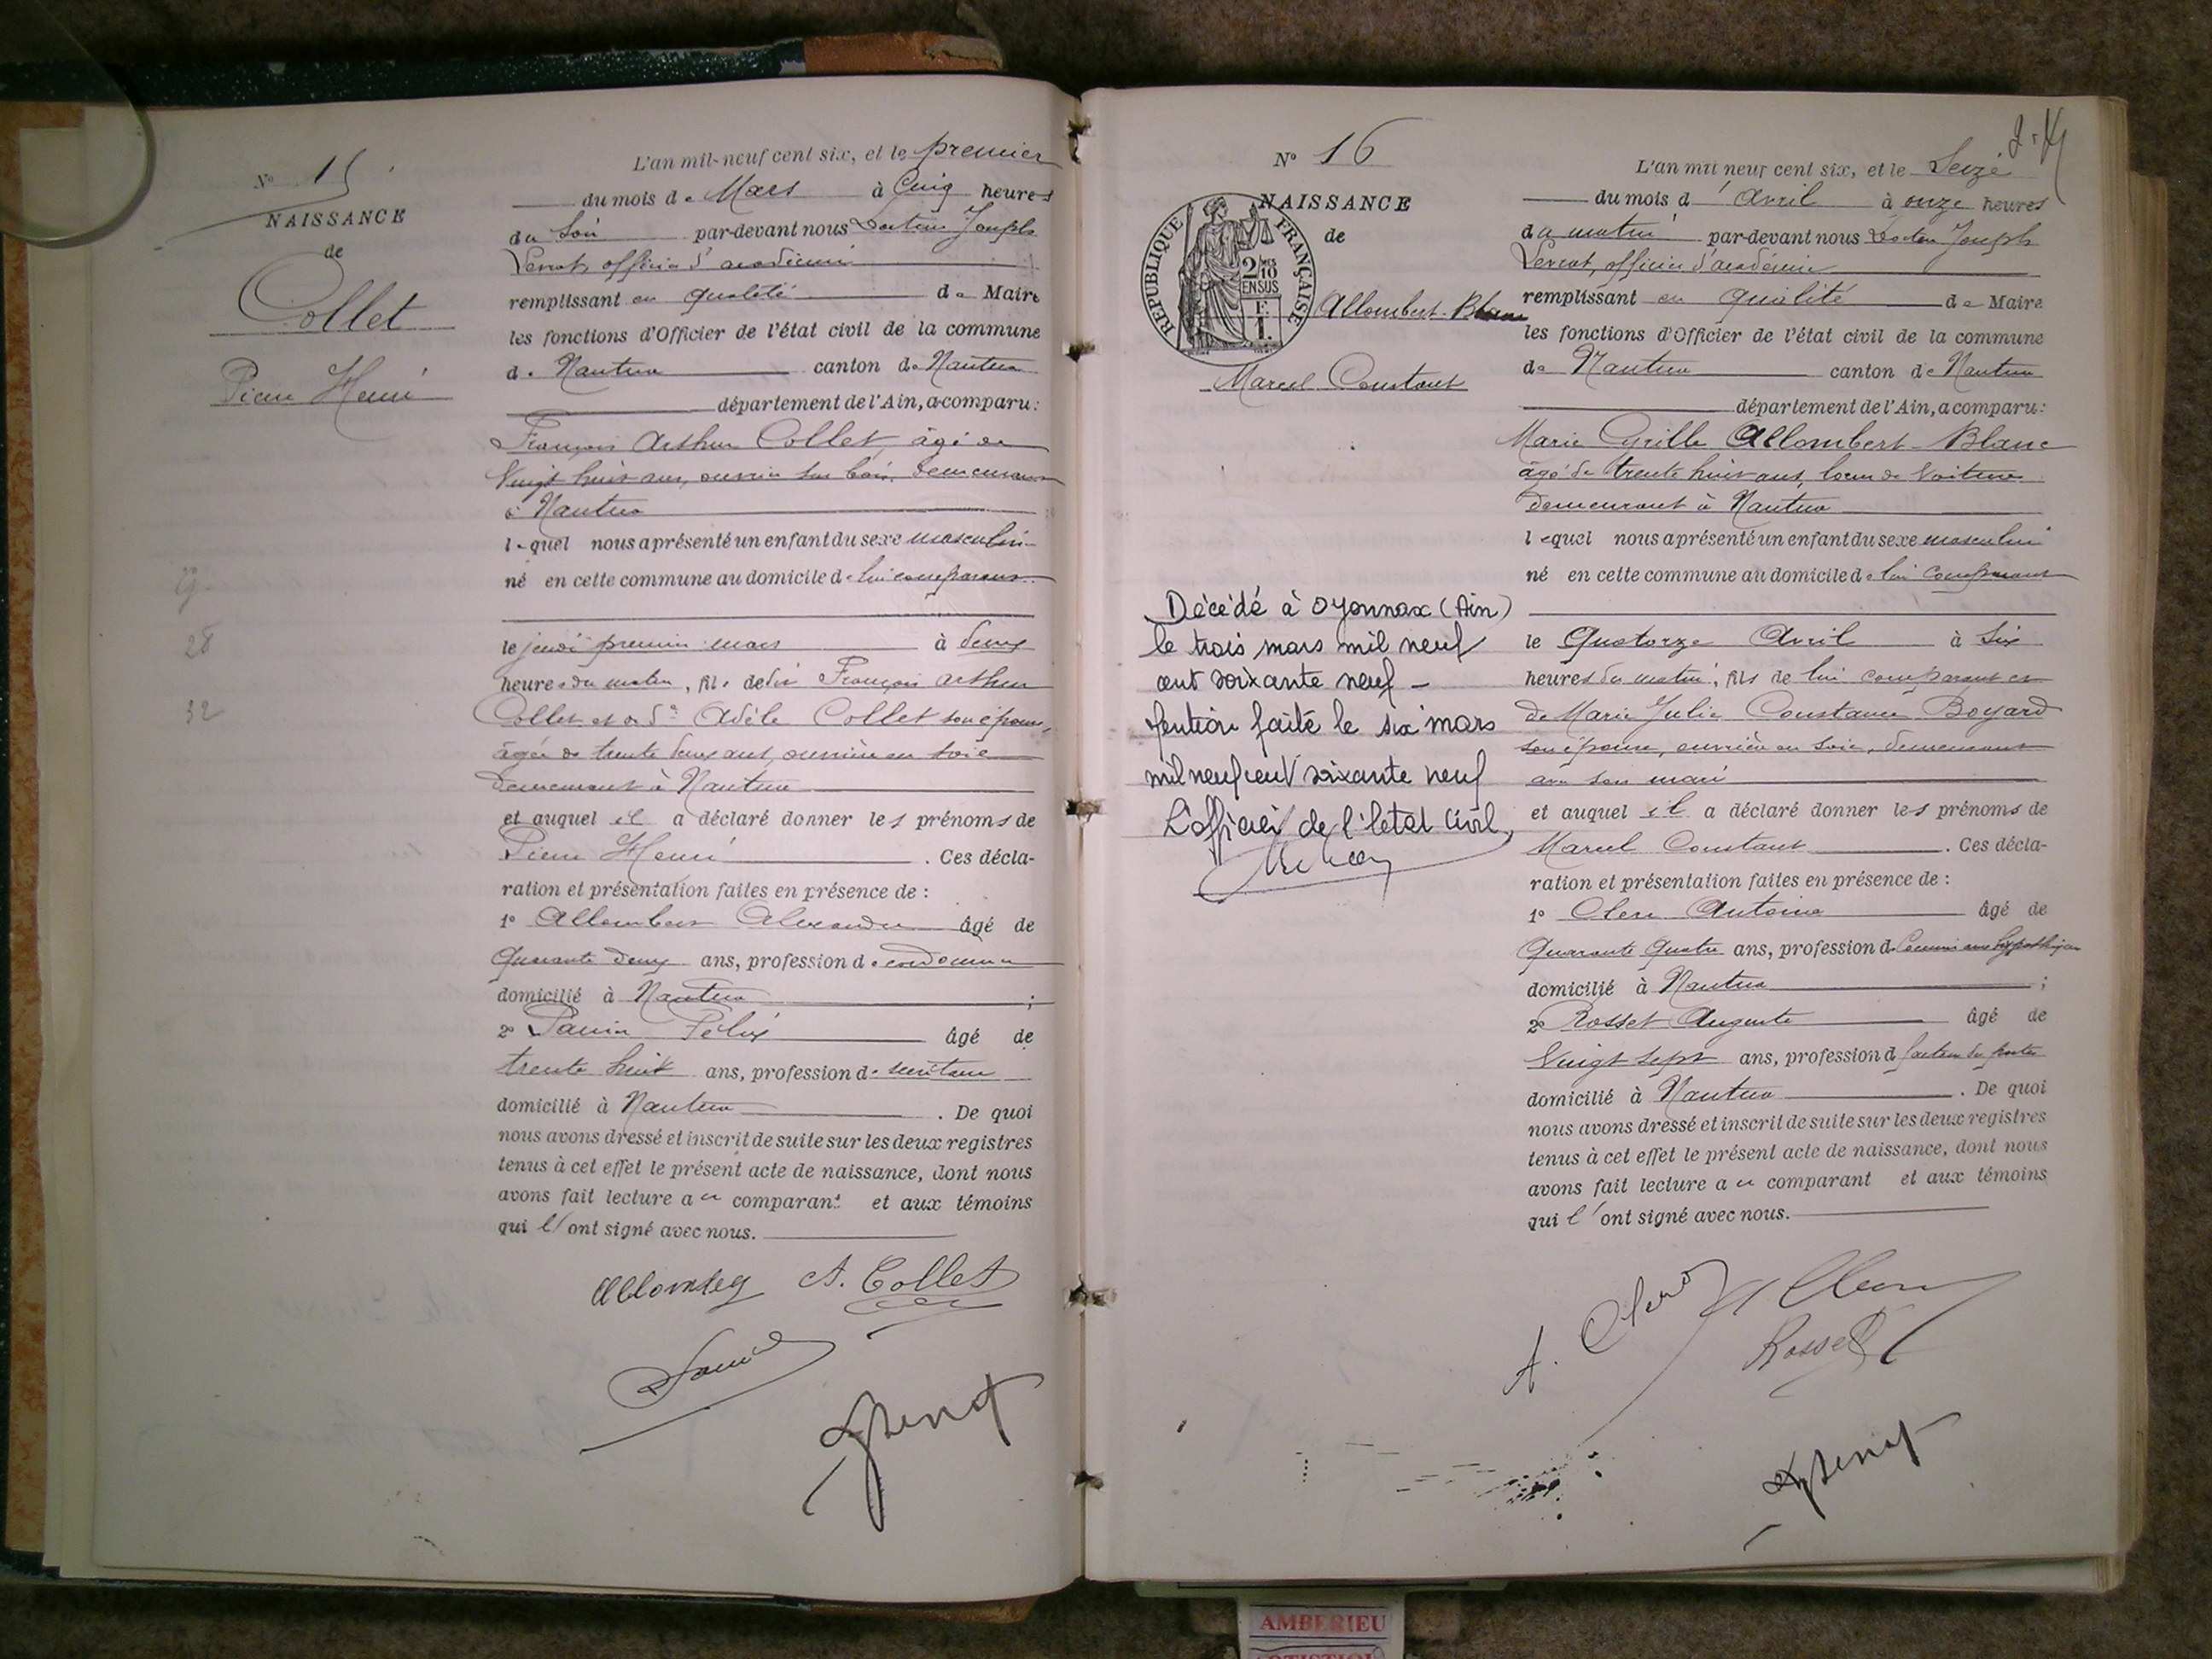 N° 15
NAISSANCE
de
Collet
Pierre Henri
29
28
32
L'an mil-neuf cent six, et le premier
du mois de Mars à Cinq heures
du Soir par-devant nous Docteur Joseph
Levrat, officier d'académie
remplissant en qualité de Maire
les fonctions d'Officier de l'état civil de la commune
de Nantua canton de Nantua
département de l'Ain, a comparu:
François Arthur Collet, âgé de
Vingt huit ans, ouvrier sur bois, demeurant
à Nantua
lequel nous a présenté un enfant du sexe masculin
né en cette commune au domicile de lui comparant
le jeudi premier mars à deux
heures du matin, fils dedit François Arthur
Collet et de De Adèle Collet son épouse,
âgée de trente deux ans, ouvrière en soie
demeurant à Nantua
et auquel il a déclaré donner les prénoms de
Pierre Henri . Ces décla-
ration et présentation faites en présence de :
1° Allombert Alexandre âgé de
Quarante deux ans, profession de cordonnier
domicilié à Nantua ;
2° Panin Félix âgé de
trente huit ans, profession de secrétaire
domicilié à Nantua . De quoi
nous avons dressé et inscrit de suite sur les deux registres
tenus à cet effet le présent acte de naissance, dont nous
avons fait lecture au comparant et aux témoins
qui l'ont signé avec nous.
A. Collet
N° 16
NAISSANCE
de
RÉPUBLIQUE FRANÇAISE
2/10 MES
EN SUS
F.
1.
Allombert-Blanc
Marcel Constant
Décédé à Oyonnax (Ain)
le trois mars mil neuf
cent soixante neuf -
Mention faite le six mars
mil neuf cent soixante neuf
L'officier de l'létat Civil,
L'an mil neuf cent six, et le Seize
du mois d'Avril à onze heures
du matin par-devant nous Docteur Joseph
Levrat, officier d'académie
remplissant en qualité de Maire
les fonctions d'Officier de l'état civil de la commune
de Nantua canton de Nantua
département de l'Ain, a comparu:
Marie Cyrille Allombert-Blanc
âgé de trente huit ans, loueur de Voiture
demeurant à Nantua
lequel nous a présenté un enfant du sexe masculin
né en cette commune au domicile de lui comparant
le Quatorze Avril à Six
heures du matin, fils de lui comparant et
de Marie Julie Constance Boyard
son épouse, ouvrière en Soie, demeurant
avec son mari
et auquel il a déclaré donner les prénoms de
Marcel Constant . Ces décla-
ration et présentation faites en présence de :
1° Clerc Antoine âgé de
Quarante Quatre ans, profession de Commis aux hypothèques
domicilié à Nantua ;
2° Rosset Auguste âgé de
Vingt sept ans, profession d facteur des postes
domicilié à Nantua . De quoi
nous avons dressé et inscrit de suite sur les deux registres
tenus à cet effet le présent acte de naissance, dont nous
avons fait lecture au comparant et aux témoins
qui l'ont signé avec nous.
A. Clerc
Rosset
AMBERIEU